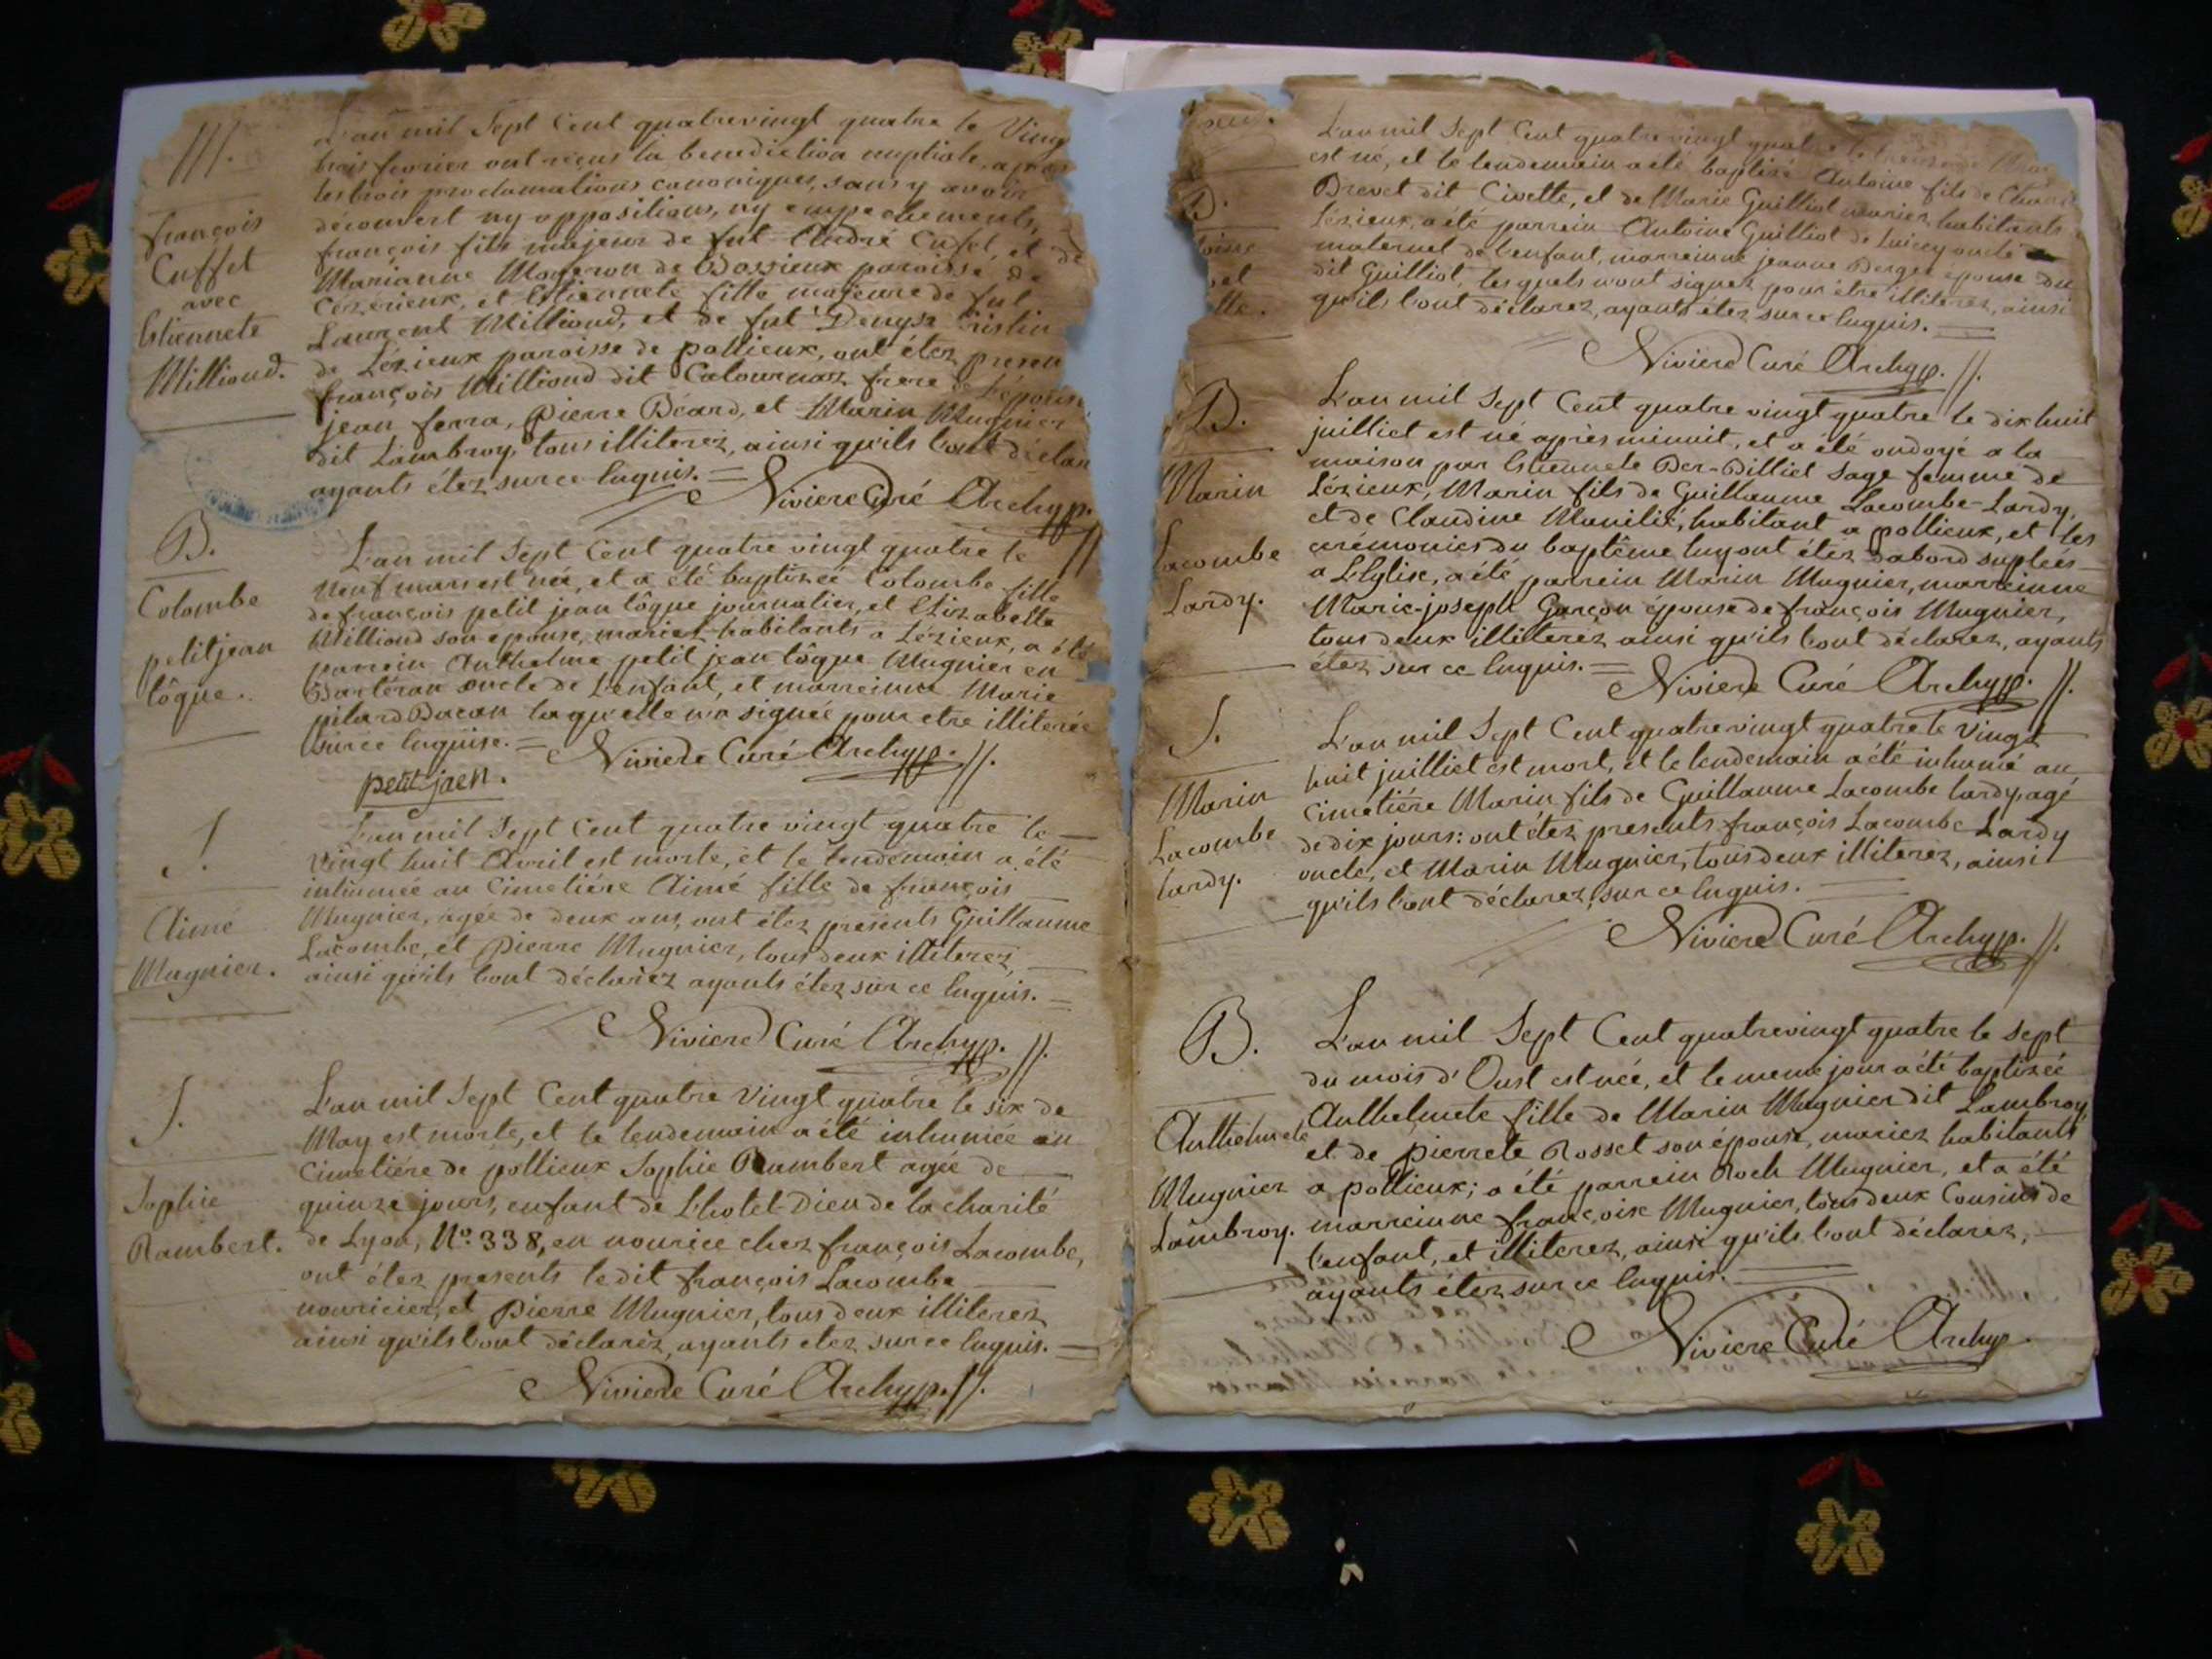 M.
françois
Cuffet
avec
Estiennete
Milliand.
L'an mil Sept Cent quatrevingt quatre le Ving
trois fevrier ont reçus la benediction nuptiale apres
les trois proclamations canoniques, sans y avoir
découvert ny oppositions, ny empechements,
françois fils majeur de fut André Cufet, et de
Marianne de Bossieux paroisse de
Cézérieux, et Estiennete fille majeure de fut
Laurent Milliand, et de fut Denyse
de Lézieux paroisse de pollieux, ont étez presen
françois Milliand dit frere de l'épouse
jean ferra, pierre Béard, et Marin Mugnier
dit Lambroy, tous illiterez, ainsi qu'ils l'ont déclar
ayants étez sur ce Enquis. =
Niviere Curé Archyp.
B.
Colombe
petitjean
tôque.
L'an mil Sept Cent quatre vingt quatre le
neuf mars est née, et a été baptizeé Colombe fille
de françois petit jean tôque journalier, et Elizabette
Milliand son epouse, mariez habitants a Lézieux, a été
parrein Anthelme petit jean tôque Mugnier en
oncle de L'enfant, et marreinne Marie
pilard Bacon laqu'elle n'a signée pour etre illiterée
sur ce Enquise. =
Niviere Curé Archyp. //.
petit jaen.
S.
Aimé
Mugnier.
L'an mil Sept Cent quatre vingt quatre le
vingt huit Avril est morte, et le lendemain a été
inhumée au Cimetiére Aimé fille de françois
Mugnier, agée de deux ans, ont étez presents Guillaume
Lacombe, et pierre Mugnier, tous deux illiterez
ainsi qu'ils l'ont déclarez ayants étez sur ce Enquis. =
Niviere Curé Archyp. //.
S.
Sophie
Rambert.
L'an mil Sept Cent quatre Vingt quatre le six de
May est morte, et le lendemain a été inhumée au
Cimetiére de pollieux Sophie Rambert agée de
quinze jours, enfant de L'hotel-Dieu de la charité
de Lyon, N.º 338, en nourice chez françois Lacombe,
ont étez presents ledit françois Lacombe
nouricier, et pierre Mugnier, tous deux illiterez
ainsi qu'ils l'ont déclarez, ayants etez sur ce Enquis. =
Niviere Curé Archyp. //.
L'an mil Sept Cent quatre vingt quatre
est né, et le lendemain a eté baptizé Antoine fils de
Brevet dit Civette, et de Marie Guilliot mariez habitants
Lézieux, a été parrein Antoine Guilliot de oncle
maternel de l'enfant, marreinne jeanne Berger epouse du
dit Guilliot, lesquels n'ont signez pour être illiterez, ainsi
qu'ils l'ont déclarez, ayants étez sur ce Enquis. =
Niviere Curé Archyp. //.
B.
Marin
Lacombe
Lardy.
L'an mil Sept Cent quatre vingt quatre le dix huit
juilliet est né après minuit, et a été ondoyé a la
maison par Estiennete Ber-Billiet Sage femme de
Lézieux, Marin fils de Guillaume Lacombe-Lardy,
et de Claudine habitant a pollieux, et les
cerémonies du baptême luy ont étez dabord supleés
a L'Eglise, a été parrein Marin Mugnier, marreinne
Marie-joseph Garçon épouse de françois Mugnier,
tous deux illiterez ainsi qu'ils l'ont déclarez, ayants
étez sur ce Enquis. =
Niviere Curé Archyp. //.
S.
Marin
Lacombe
lardy.
L'an mil Sept Cent quatre vingt quatre le Vingt
huit juilliet est mort, et le lendemain a été inhumé au
Cimetiére Marin fils de Guillaume Lacombe lardy, agé
de dix jours: ont étez presents françois Lacombe Lardy
oncle, et Marin Mugnier, tous deux illiterez, ainsi
qu'ils l'ont déclarez, sur ce Enquis.
Niviere Curé Archyp. //.
B.
Anthelmete
Mugnier
Lambroy.
L'an mil Sept Cent quatrevingt quatre le sept
du mois d'Oust est née, et le meme jour a été baptizée
Anthelmete fille de Marin Mugnier dit Lambroy,
et de pierrete Rosset son épouse, mariez habitants
a pollieux; a été parrein Roch Mugnier, et a été
marreinne françoise Mugnier, tous deux Cousins de
l'enfant, et illiterez, ainsi qu'ils l'ont déclarez,
ayants étez sur ce Enquis.
Niviere Curé Archyp.